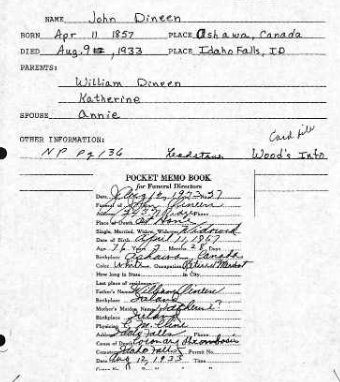 NAME John Dineen
BORN Apr 11 1857 PLACE Oshawa, Canada
DIED Aug. 9, 1933 PLACE Idaho Falls, ID
PARENTS:
William Dineen
Katherine
SPOUSE Annie
Card file
OTHER INFORMATION:
NP Pg 136 Headstone Wood's Info
POCKET MEMO BOOK
for Funeral Directors
Date Aug 12, 1933
Funeral of John Dineen
Place of Death At Home
Single, Married, Widow, Widower Widowed
Date of Birth April 11, 1857
Age 76 Years 3 Mons 28 Days
Birthplace Oshawa, Canada
Color White Occupation Retired
How long in State in City
Last place of residence
Father's Name William Dineen
Birthplace Ireland
Mother's Maiden Name Katherine ?
Birthplace Ireland
Physician C. M. Cline
Address Idaho Falls Phone
Cause of Death Coronary Thrombosis
Cemetery Idaho Falls Permit No.
Date Aug 12, 1933